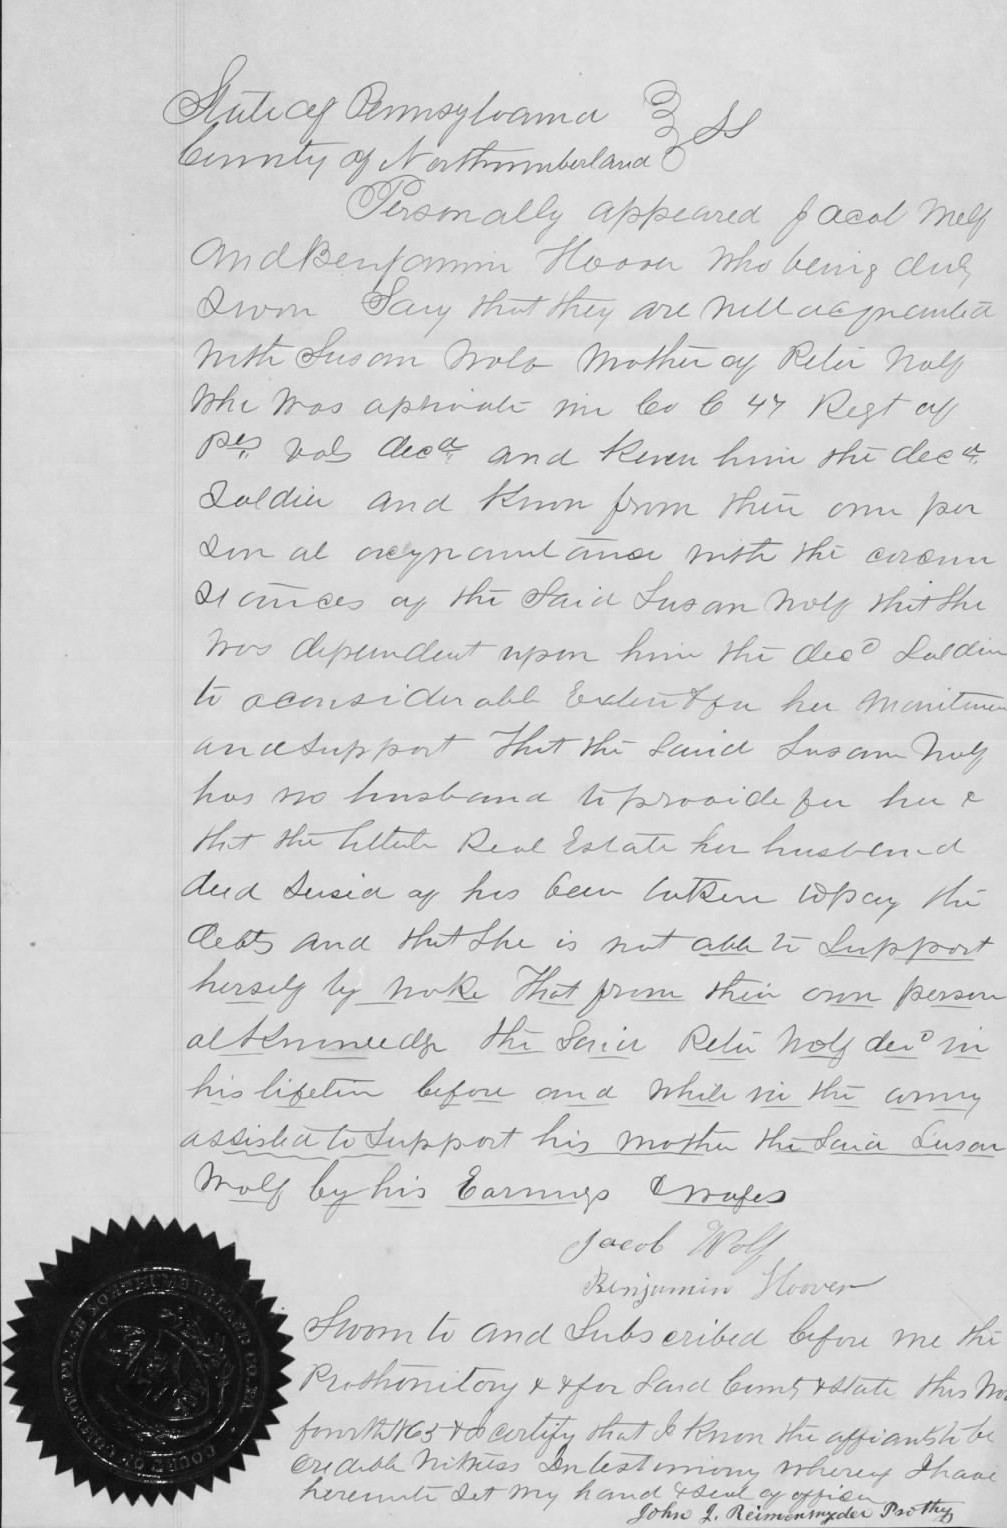 State of Pennsylvania } SS
County of Northumberland
Personally appeared Jacob Wolf
and Benjamin Hoover who being duly
Sworn Say that they are well acquainted
with Susan Wolf Mother of Peter Wolf
who was a private in Co C 47 Regt of
Pa Vols decd and knew him the decd
Soldier and know from their own per
son al acquaintance with the circum
stances of the Said Susan Wolf that She
was dependent upon him the decd Soldier
to a considerable Extent for her
and Support That the Said Susan Wolf
has no husband to provide for her &
that the little Real Estate her husband
died Seized of has been taken to pay the
debts and that She is not able to Support
herself by That from their own person
al Knowledge the Said Peter Wolf decd in
his lifetime before and while in the army
assisted to Support his mother the Said Susan
Wolf by his Earnings & wages
Jacob Wolf
Benjamin Hoover
Sworn to and Subscribed before me the
Prothonitory & for Said County & State this
fourth 1863 & I certify that I know the affiants to be
credible Witness In testimony whereof I have
hereunto Set my hand & Seal of office
John J. Reimensnyder Prothy
COURT OF COMMON PLEAS NORTHUMBERLAND CO. PA.